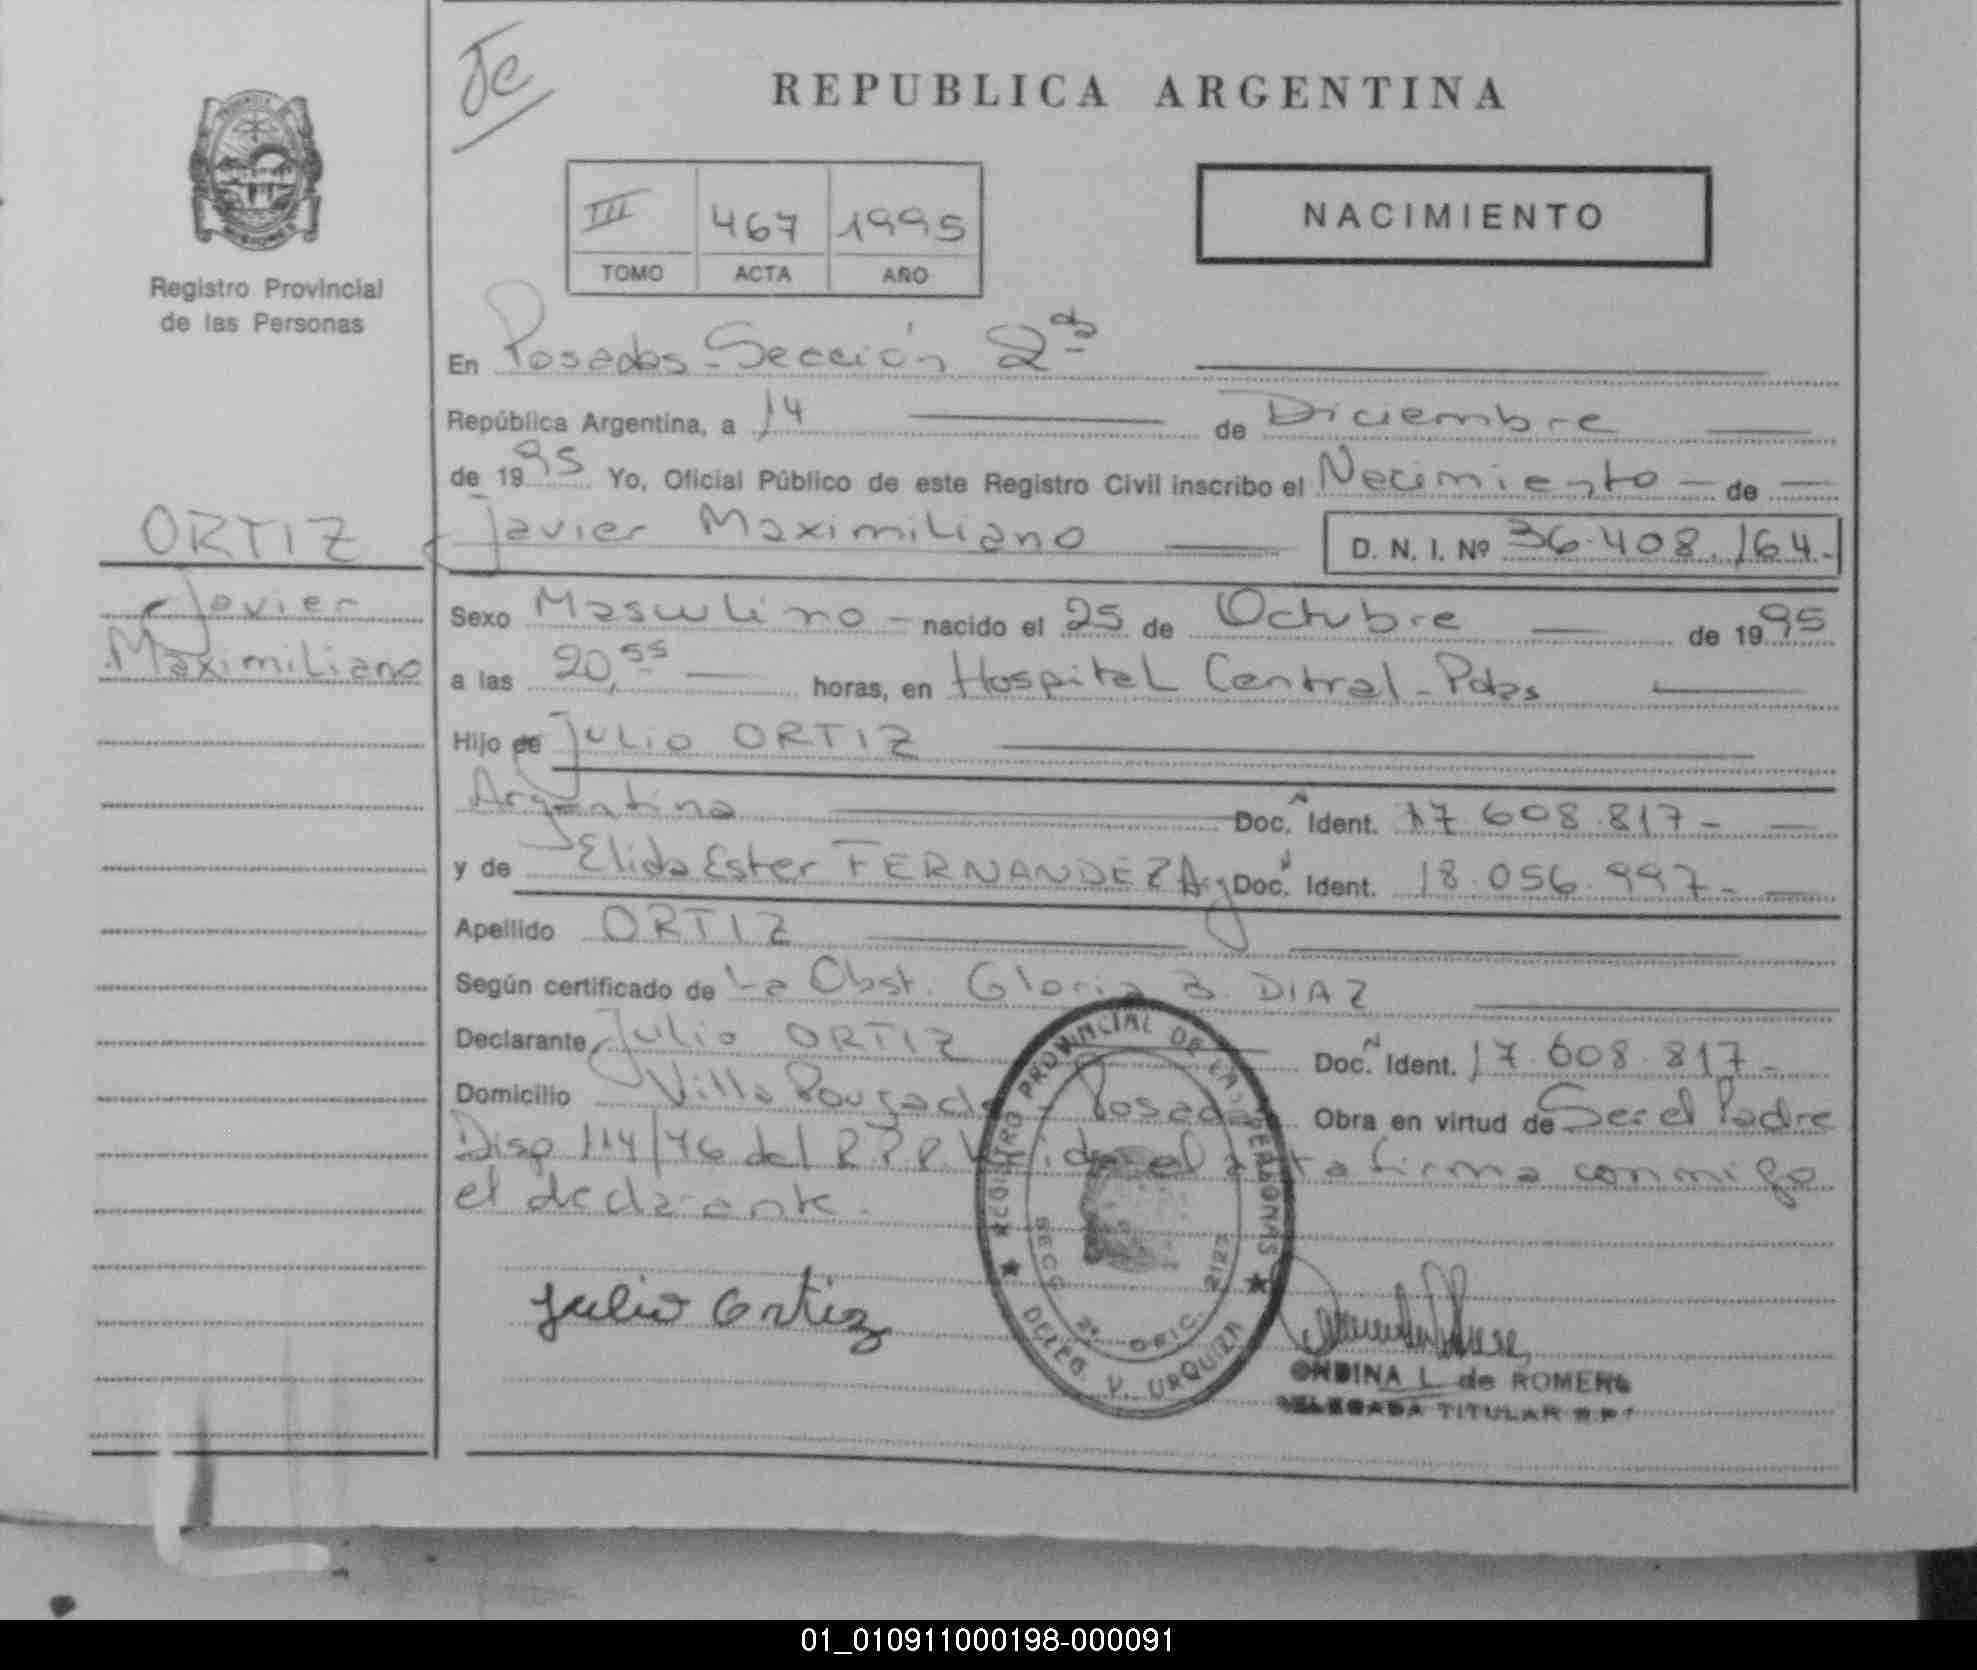 Je
REPUBLICA ARGENTINA
III 467 1995
TOMO ACTA AÑO
NACIMIENTO
MISIONES
Registro Provincial
de las Personas
En Posadas - Sección 2da
República Argentina, a 14 de Diciembre
de 1995 Yo, Oficial Público de este Registro Civil inscribo el Nacimiento - de
Javier Maximiliano D. N. I. Nº 36.408.164.-
ORTIZ
Javier
Maximiliano
Sexo Masculino - nacido el 25 de Octubre de 1995
a las 20,55 horas, en Hospital Central - Pdas
Hijo de Julio ORTIZ
Argentina Doc. N Ident. 17.608.817-
y de Elida Ester FERNANDEZ Arg Doc. N Ident. 18.056.997-
Apellido ORTIZ
Según certificado de La Obst. Gloria B. DIAZ
Declarante Julio ORTIZ Doc. N Ident. 17.608.817-
Domicilio Villa Posadas Obra en virtud de Ser el Padre
Disp 114/76 del R.P.P. el acta firma conmigo
el declarante.
Julio Ortiz
REGISTRO PROVINCIAL DE LAS PERSONAS
SECC. 2ª OFIC. 2127
DELEG. V. URQUIZA
ONDINA L. de ROMERO
DELEGADA TITULAR R.P.
01_010911000198-000091